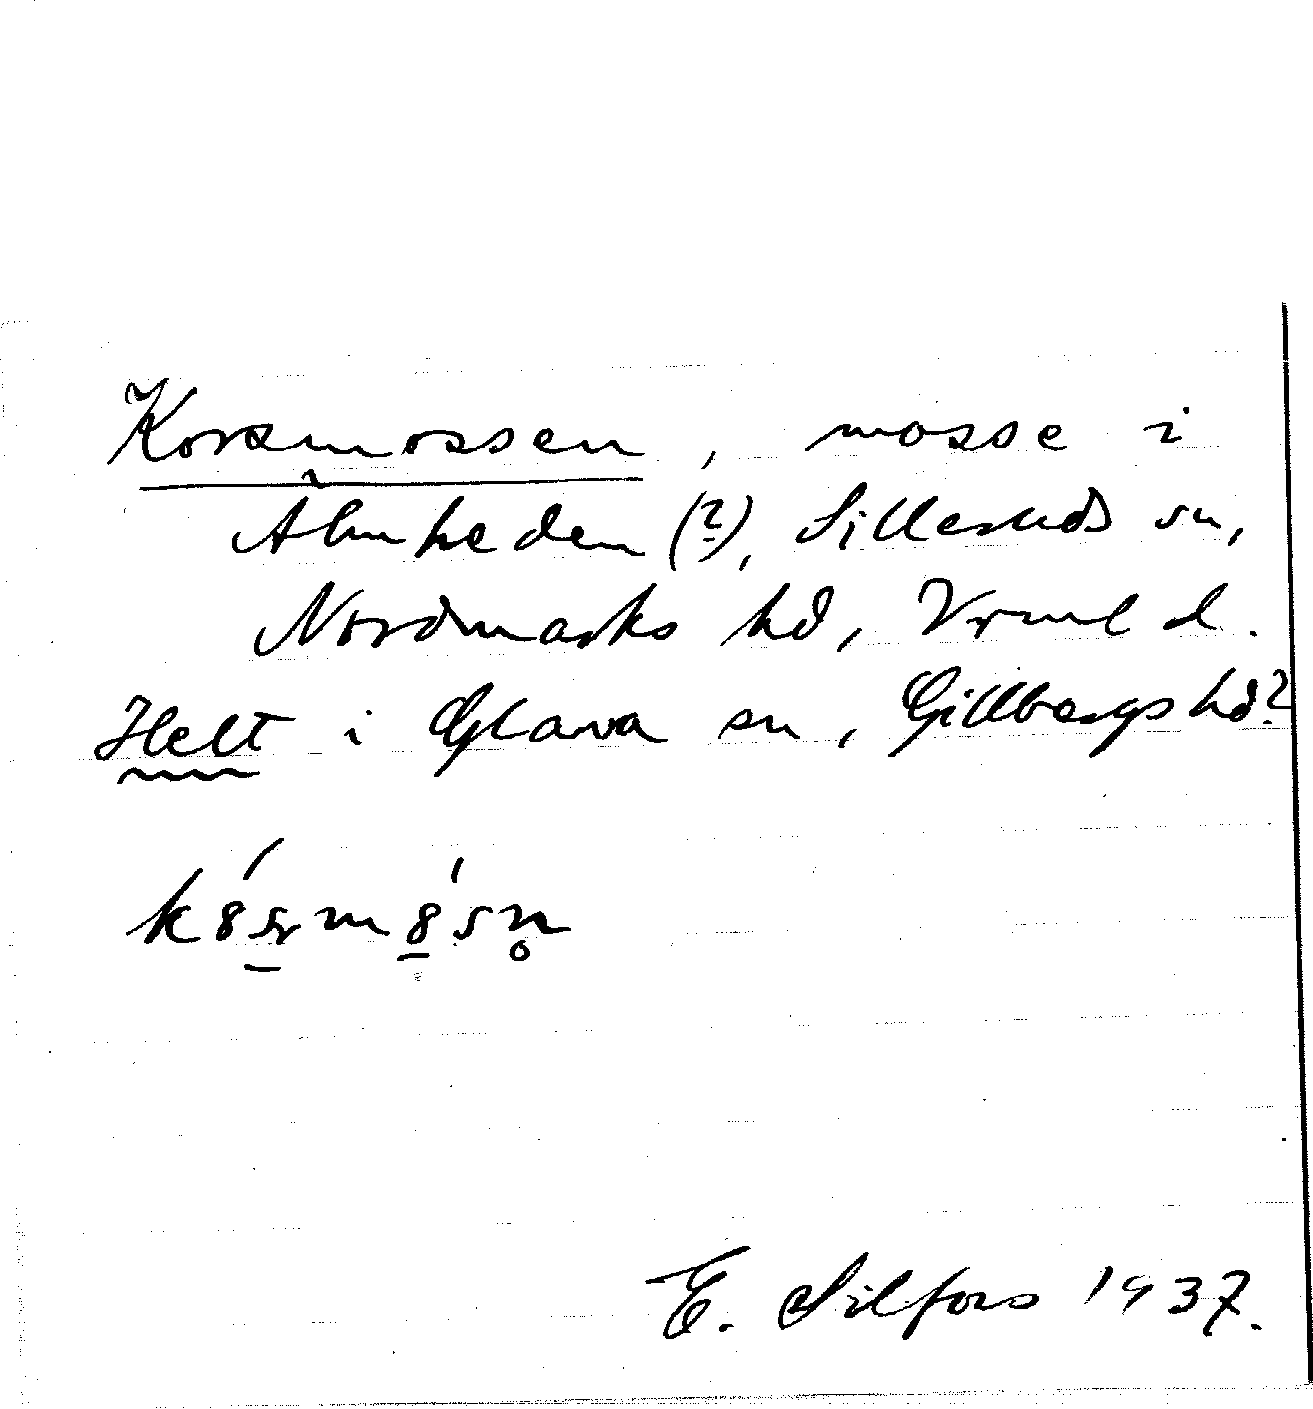 Korsmossen, mosse i
Älmheden (?), Silleruds sn,
Nordmarks hd, Vrml d.
Helt i Glava sn, Gillbergs hd?
E. Silfors 1937.